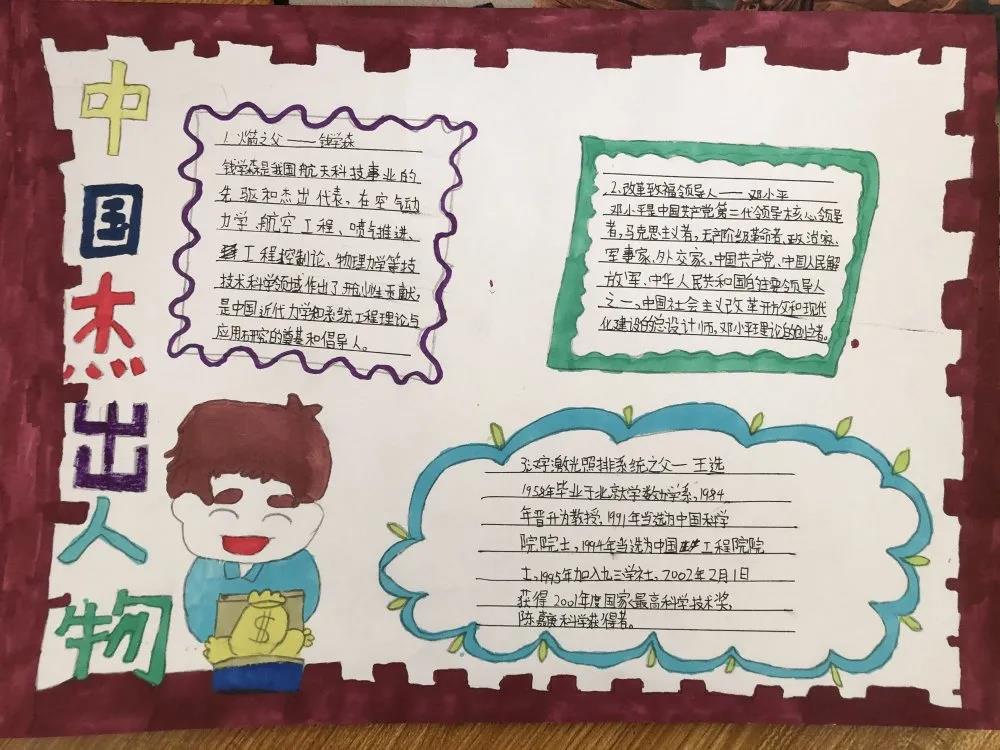 中国杰出人物
1. 火箭之父——钱学森
钱学森是我国航天科技事业的
先驱和杰出代表,在空气动
力学、航空工程、喷气推进、
工程控制论、物理力学等技
技术科学领域作出了开创性贡献,
是中国近代力学和系统工程理论与
应用研究的奠基和倡导人。
2、改革致福领导人——邓小平
邓小平是中国共产党第二代领导核心领导
者,马克思主义者,无产阶级革命者、政治家、
军事家、外交家,中国共产党、中国人民解
放军、中华人民共和国的主要领导人
之一,中国社会主义改革开放和现代
化建设的总设计师,邓小平理论的创立者。
3汉字激光照排系统之父—王选
1958年毕业于北京大学数力学系,1984
年晋升为教授,1991年当选为中国科学
院院士,1994年当选为中国工程院院
士,1995年加入九三学社,2002年2月1日
获得2001年度国家最高科学技术奖,
陈嘉庚科学获得者。
$